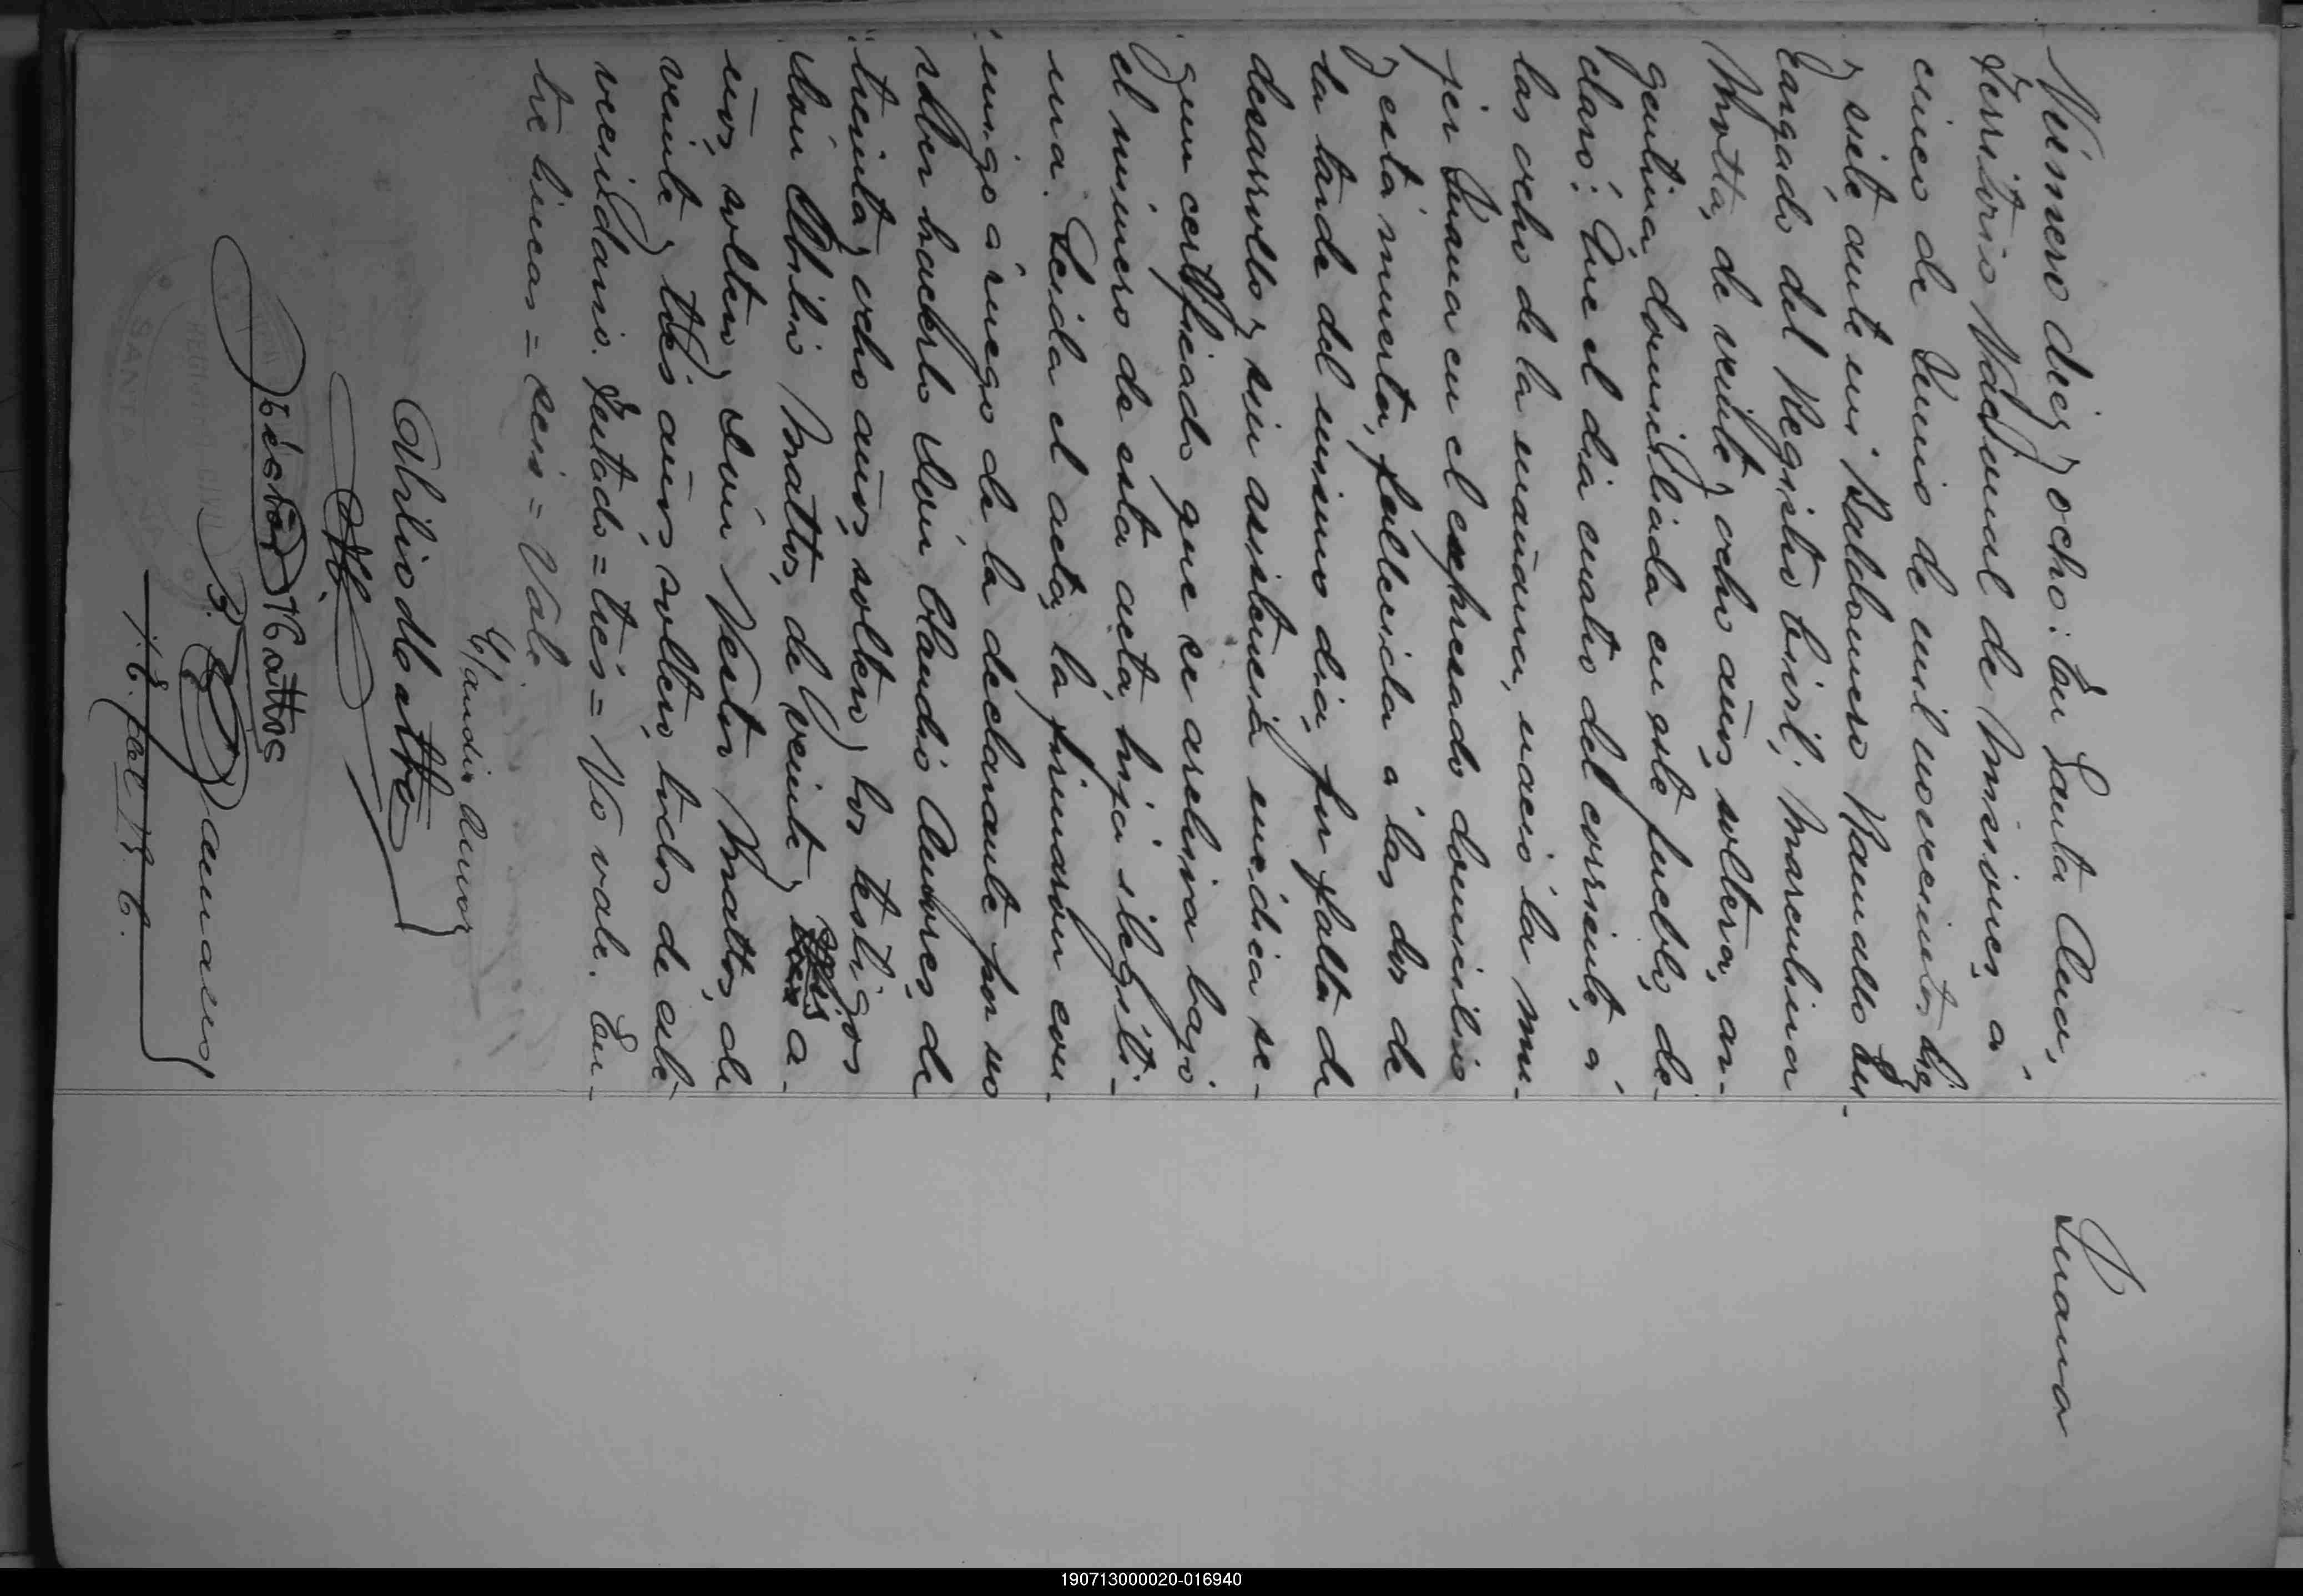 Juana
Número diez y ocho: En Santa Ana,
Territorio Nacional de Misiones, a
cinco de Junio de mil novecientos diez
y siete, ante mi Baldomero Ramallo En-
cargado del Registro Civil; Marculina
Motta, de veinte y ocho años, soltera, ar-
gentina domiciliada en este pueblo, de-
claró: Que el día cuatro del corriente, á
las ocho de la mañana, nació la mu-
jer Juana en el expresado domicilio
y está muerta, fallecida á las dos de
la tarde del mismo día, por falta de
desarrollo y sin asistencia médica se-
gun certificado que se archiva bajo
el número de esta acta, hija ilegíti-
ma. Leida el acta, la firmaron con-
migo á ruego de la declarante por no
saber hacerlo Don Claudio Amores, de
treinta y ocho años, soltero y los testigos
Don Abilio Mattos, de veinte y seis a-
ños, soltero y Don Nestor Mattos, de
veinte y tres años, soltero, todos de este
vecindario. Testado=tres=No vale. En-
tre lineas=seis=Vale
Claudio Amores
Abilio Mattos
Nestor Mattos
B. Ramallo
J. E. del R. C.
SANTA ANA
190713000020-016940